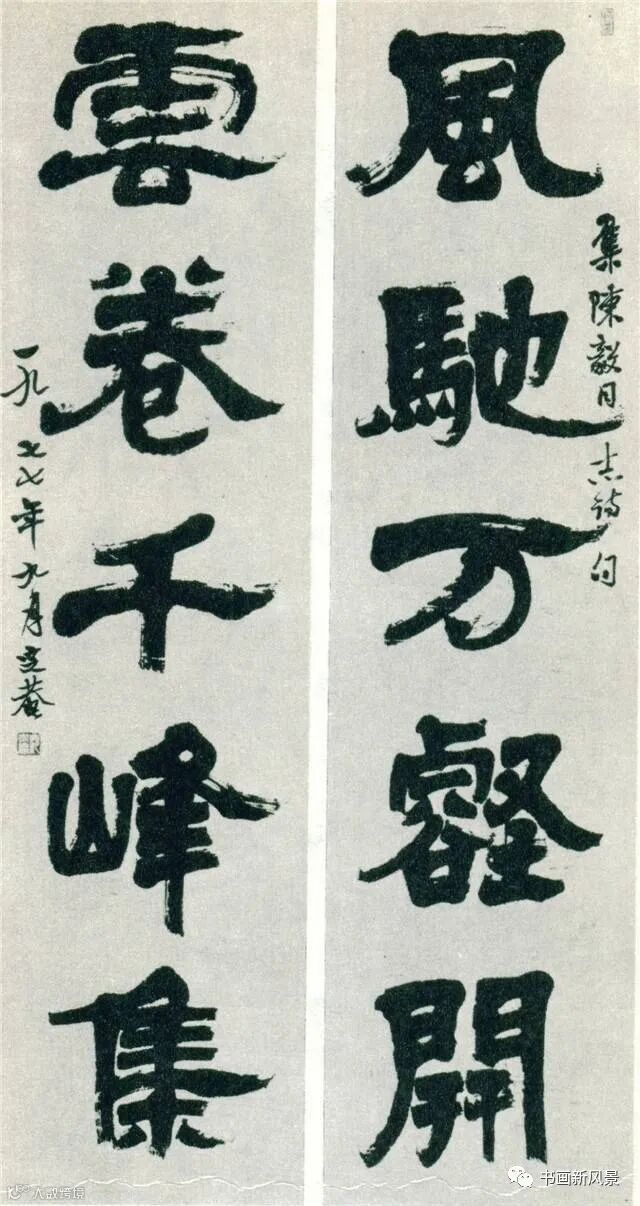 風馳万壑開
集陳毅同志詩句
雲卷千峰集
一九七七年九月菴
大数跨境
书画新风景